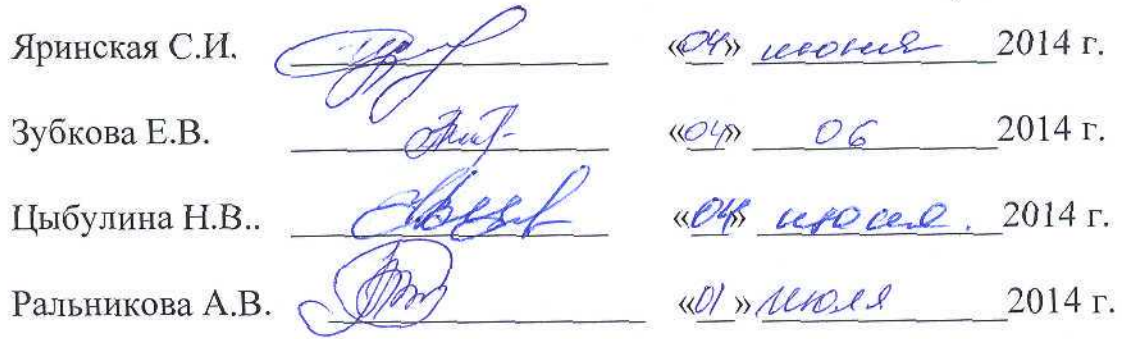 Яринская С.И. «04» июня 2014 г.
Зубкова Е.В. «04» 06 2014 г.
Цыбулина Н.В.. «04» июня. 2014 г.
Ральникова А.В. «01» июля 2014 г.